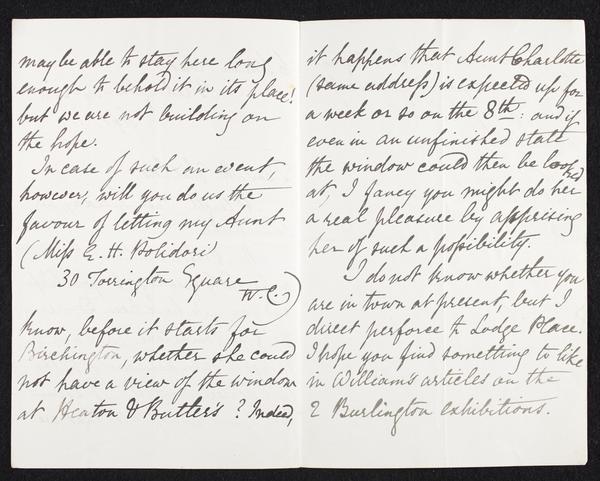 may be able to stay here long
enough to behold it in its place!
but we are not building on
the hope.
In case of such an event,
however, will you do us the
favour of letting my Aunt
(Miss E. H. Polidori
30 Torrington Square
W.C.)
know, before it starts for
Birchington, whether she could
not have a view of the window
at Heaton & Butler's? Indeed,
it happens that Aunt Charlotte
(same address) is expected up for
a week or so on the 8th: and if
even in an unfinished state
the window could then be looked
at, I fancy you might do her
a real pleasure by apprising
her of such a possibility.
I do not know whether you
are in town at present, but I
direct perforce to Lodge Place.
I hope you find something to like
in William's articles on the
2 Burlington exhibitions.